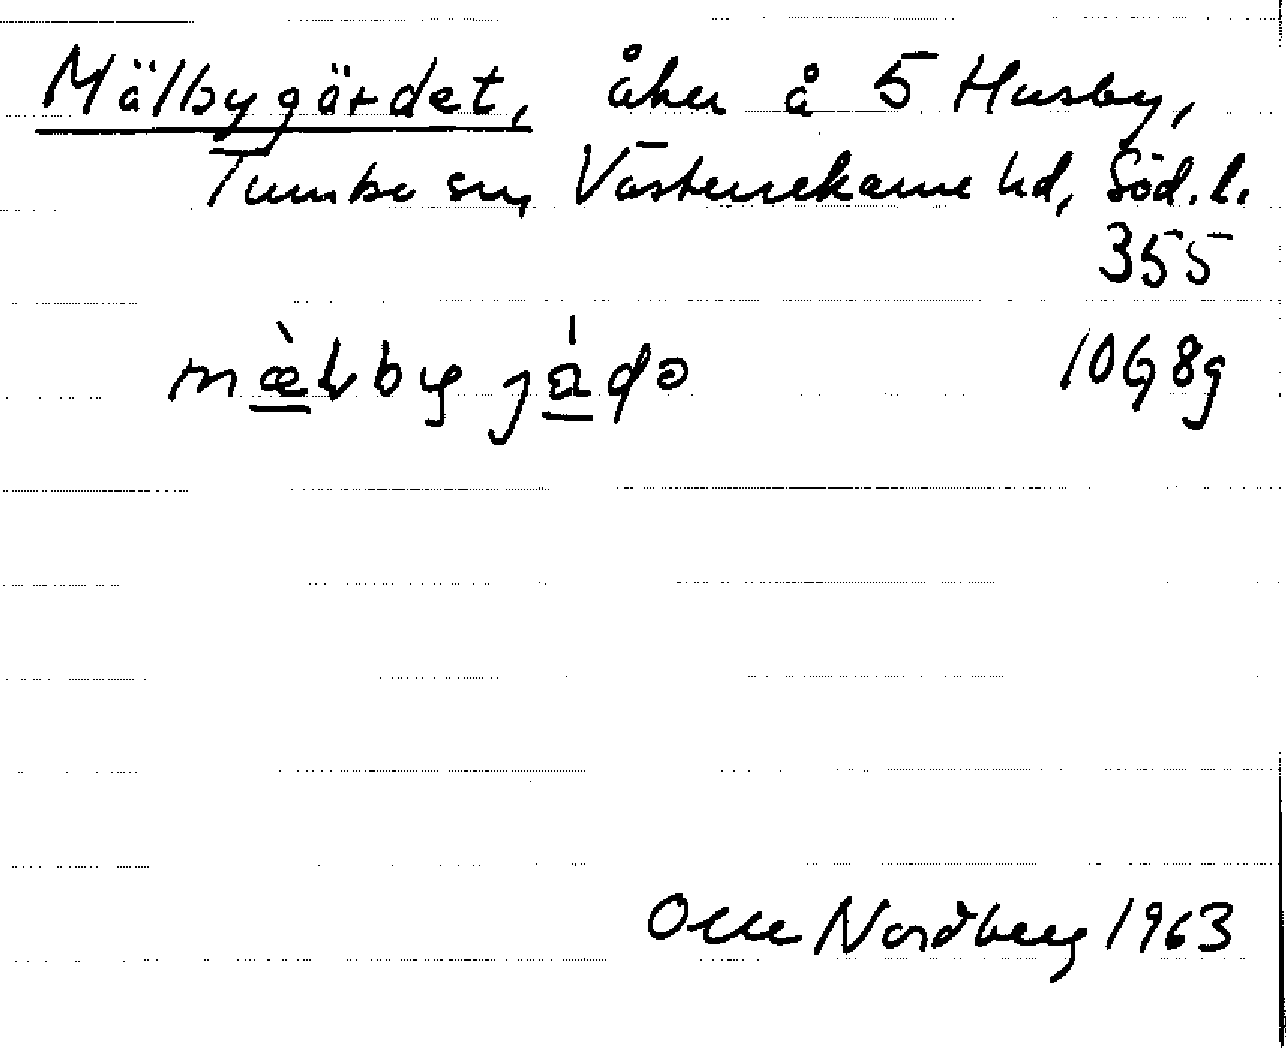 Mälbygärdet, åker å 5 Husby,
Tumbo sn, Västerrekarne hd, Söd. l.
355
10G8g
Olle Nordberg 1963